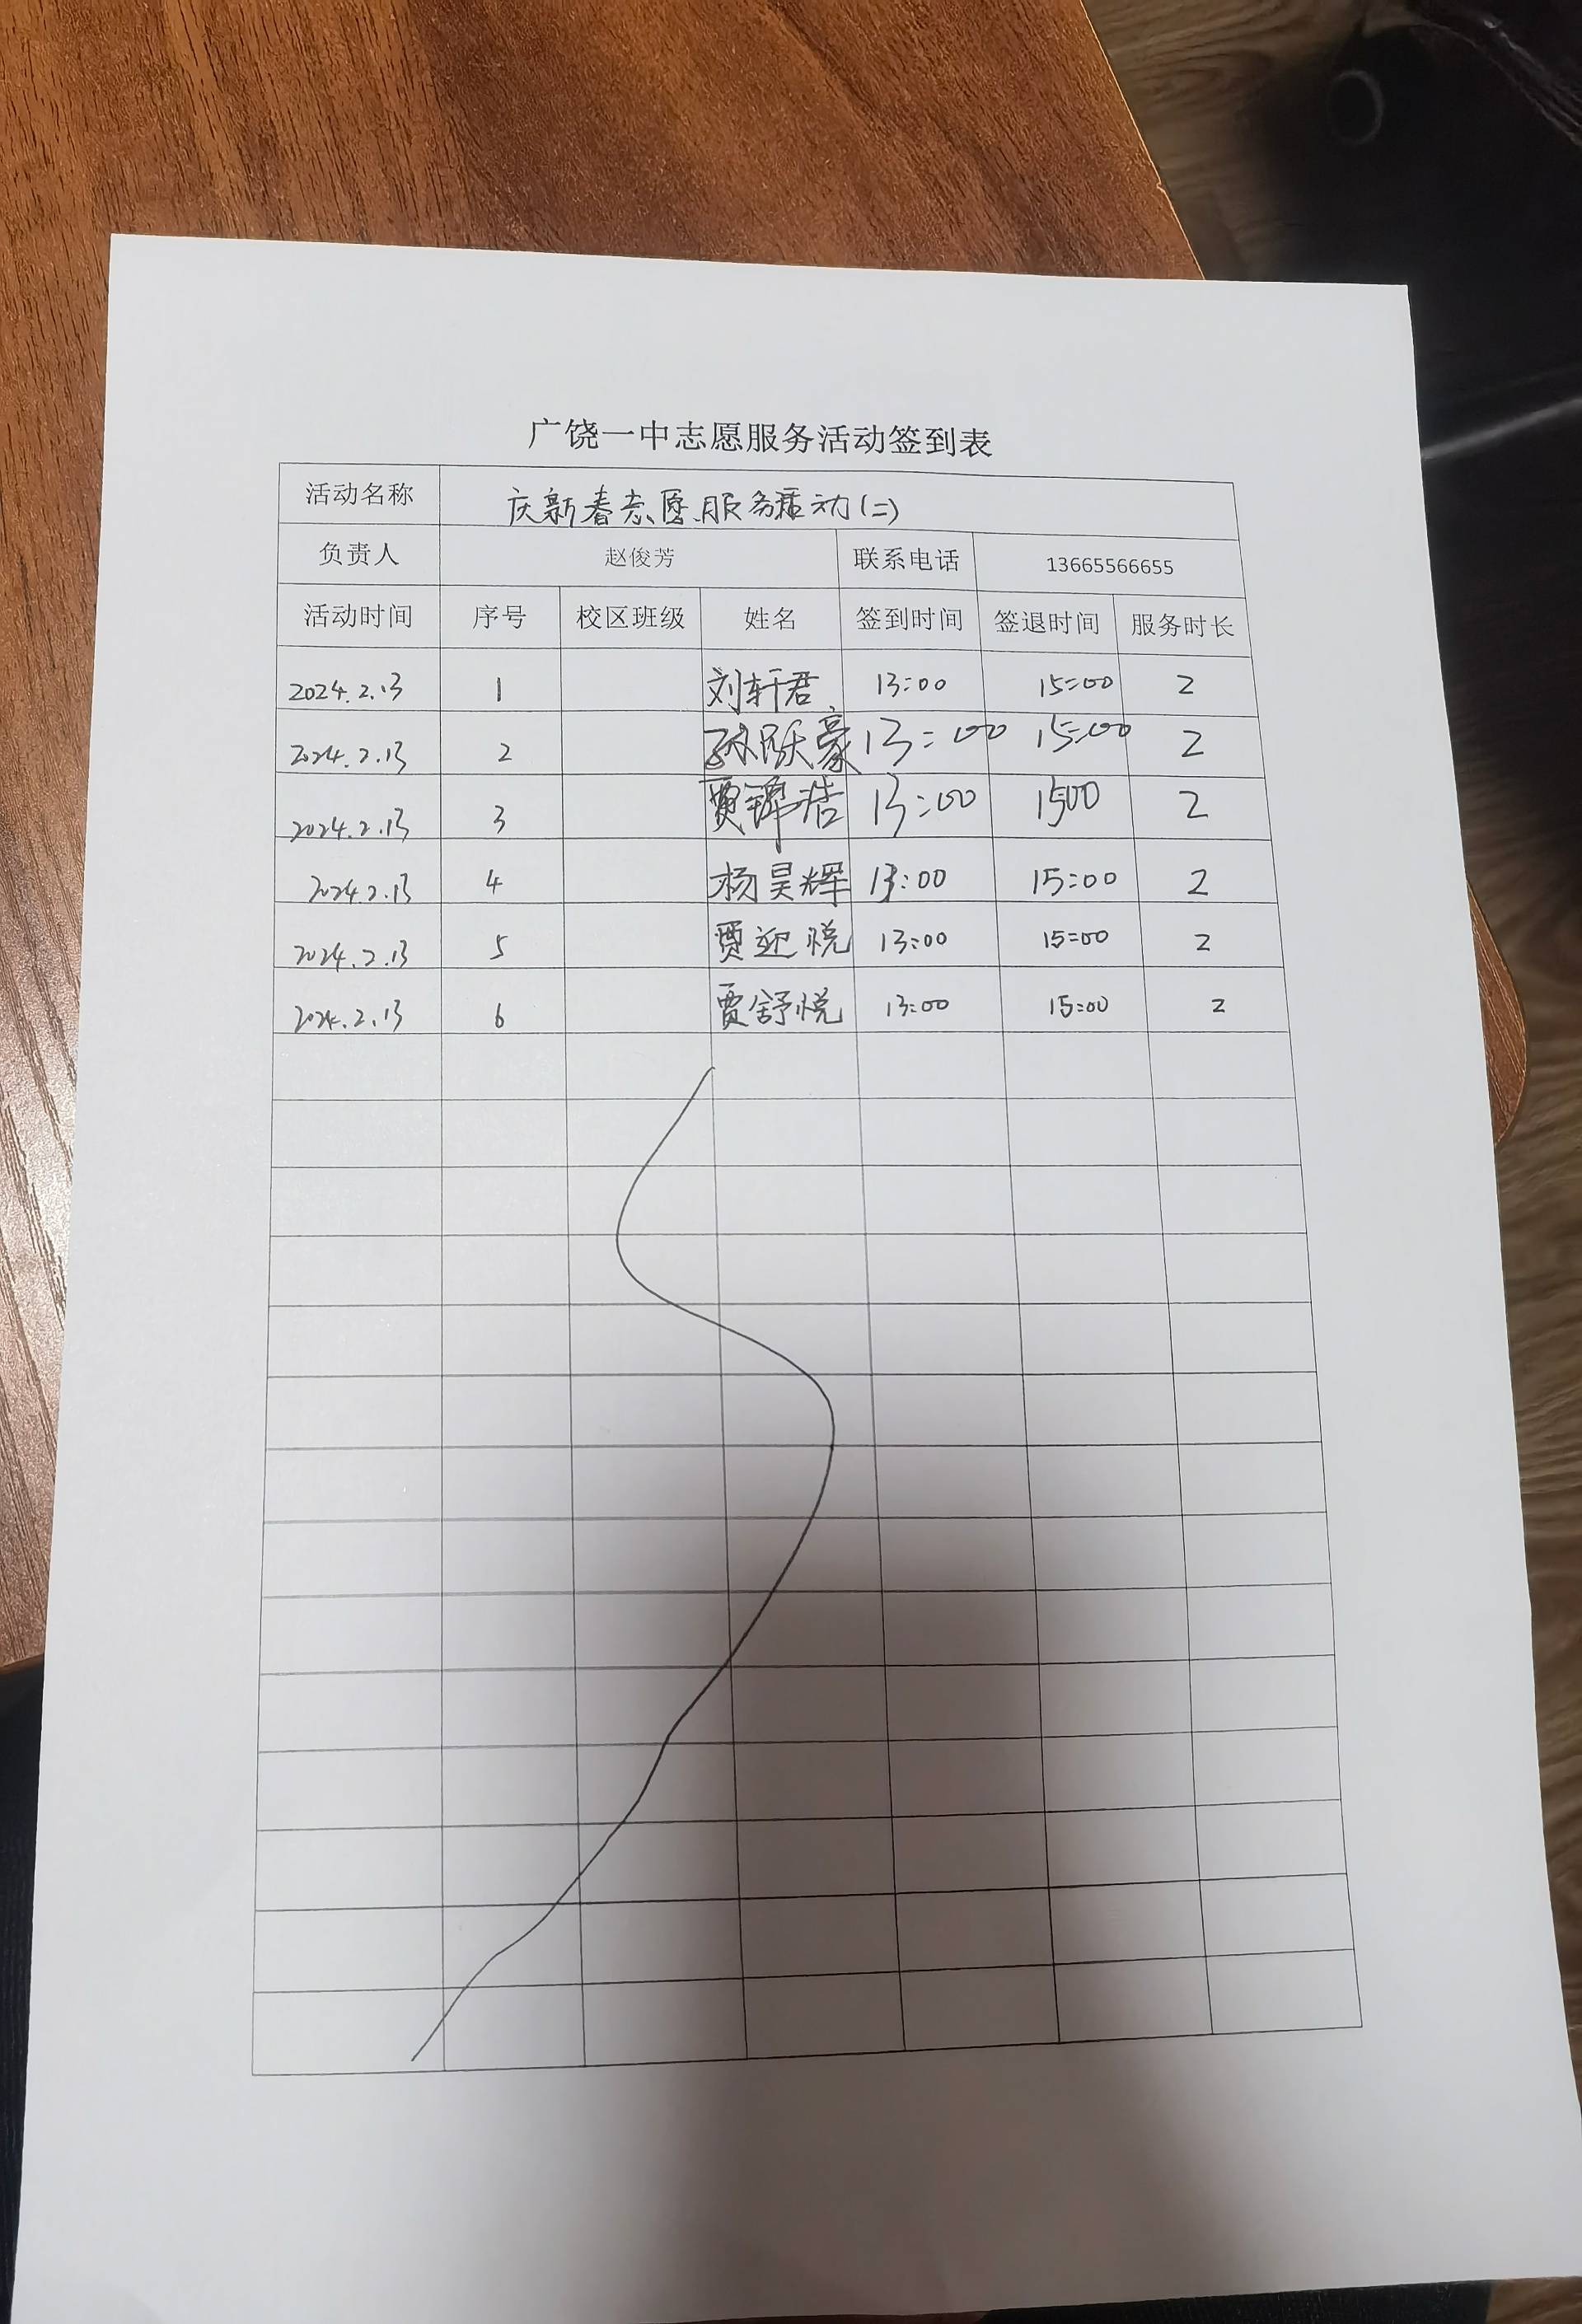 广饶一中志愿服务活动签到表
活动名称 庆新春志愿服务活动(二)
负责人 赵俊芳 联系电话 13665566655
活动时间 序号 校区班级 姓名 签到时间 签退时间 服务时长
2024.2.13 1 刘轩君 13:00 15:00 2
2024.2.13 2 孙跃豪 13:00 15:00 2
2024.2.13 3 贾镎浩 13:00 1500 2
2024.2.13 4 杨昊辉 13:00 15:00 2
2024.2.13 5 贾迎悦 13:00 15:00 2
2024.2.13 6 贾舒悦 13:00 15:00 2